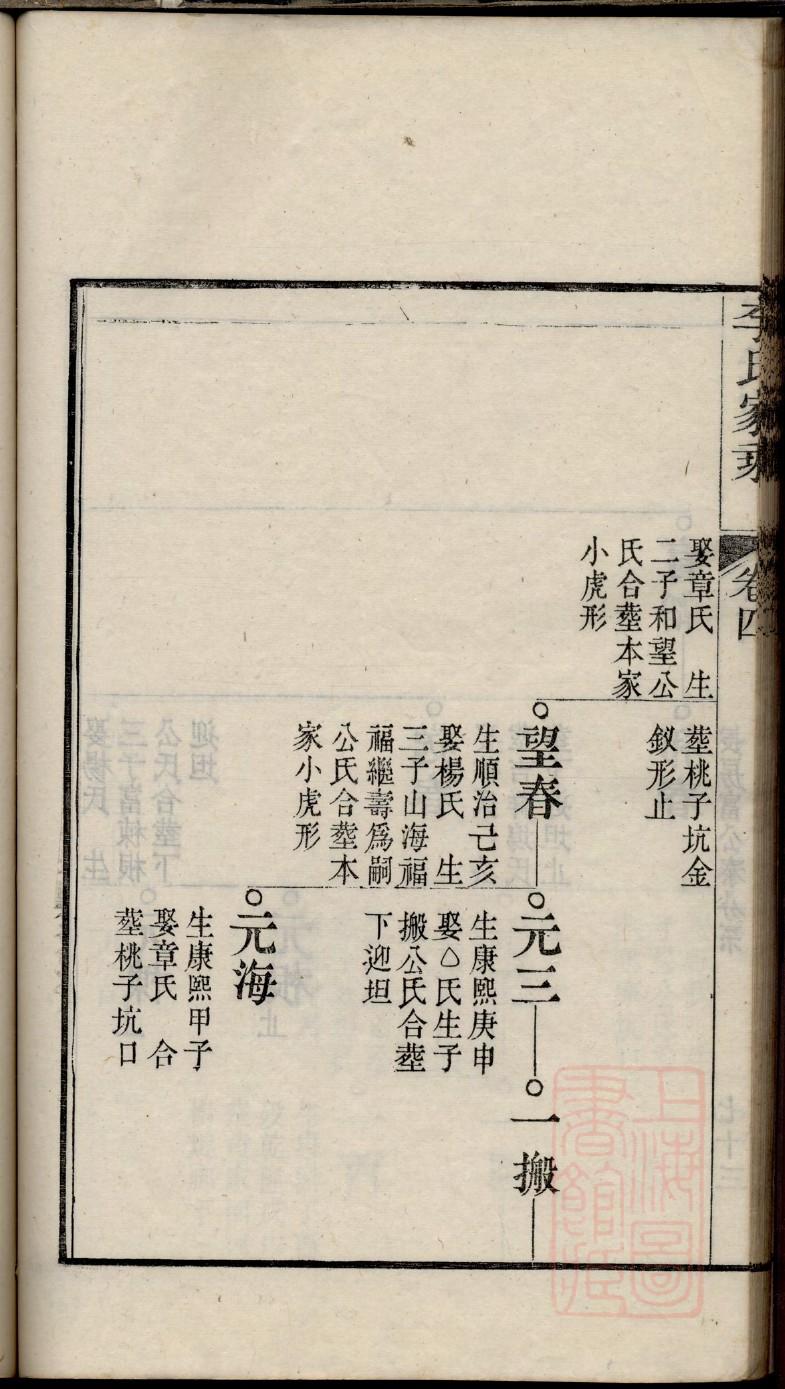 李氏家乘
卷四
娶章氏　生
二子和望公
氏合塟本家
小虎形
塟桃子坑金
釵形止
望春
生順治己亥
娶楊氏　生
三子山海福
福繼壽爲嗣
公氏合塟本
家小虎形
元三
生康熙庚申
娶△氏生子
搬公氏合塟
下迎坦
元海
生康熙甲子
娶章氏　合
塟桃子坑口
一搬
上海圖
書館藏